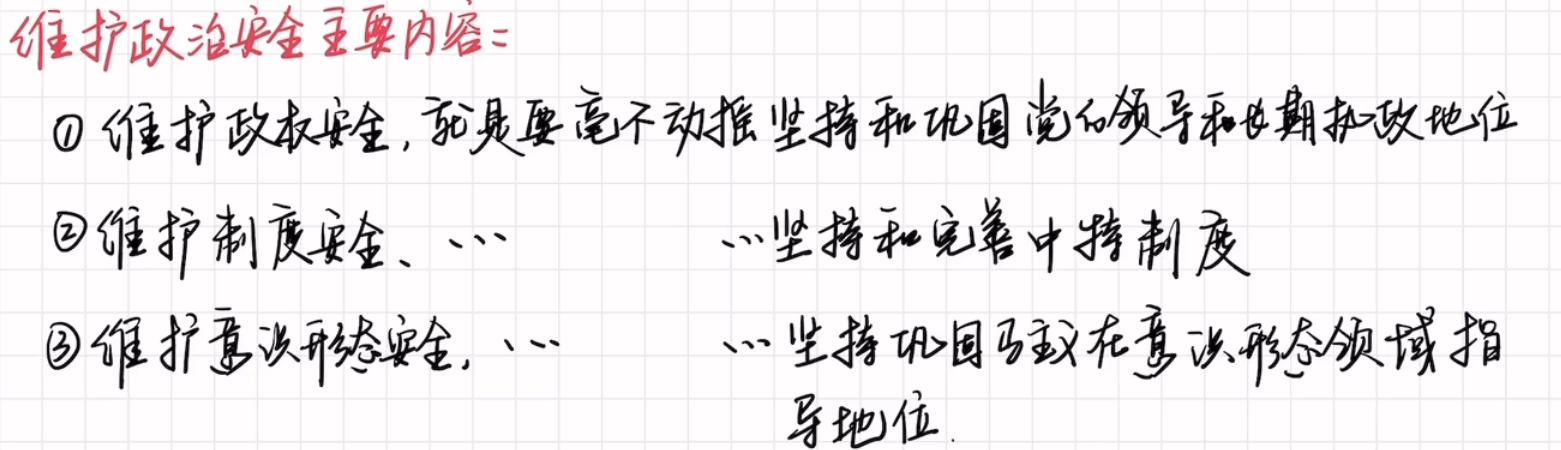 维护政治安全主要内容：
①维护政权安全，就是要毫不动摇坚持和巩固党的领导和长期执政地位
②维护制度安全、… …坚持和完善中特制度
③维护意识形态安全，… …坚持巩固马主义在意识形态领域指
导地位.